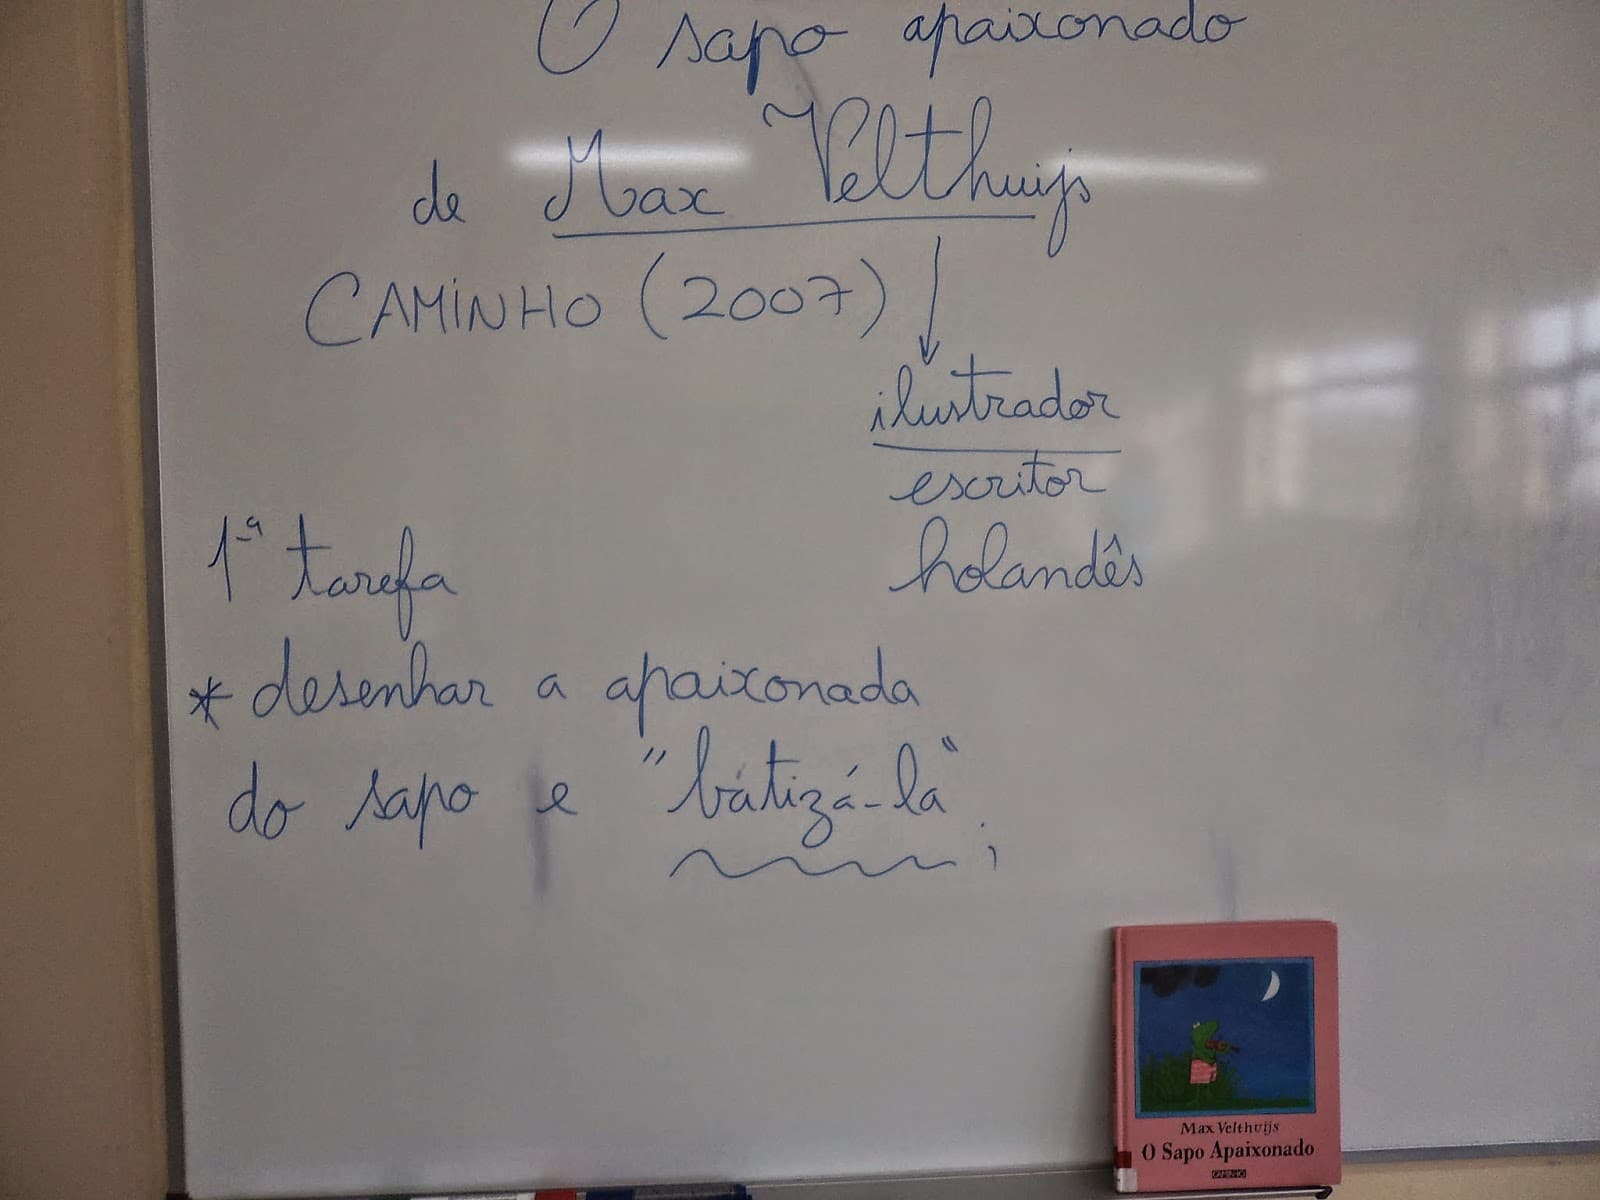 O sapo apaixonado
de Max Velthuijs
CAMINHO (2007)
ilustrador
escritor
holandês
1ª tarefa
* desenhar a apaixonada
do sapo e "batizá-la";
Max Velthuijs
O Sapo Apaixonado
CAMINHO